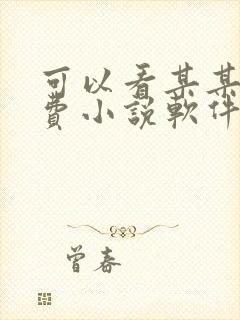 可以看某某
費小說軟件
曾春